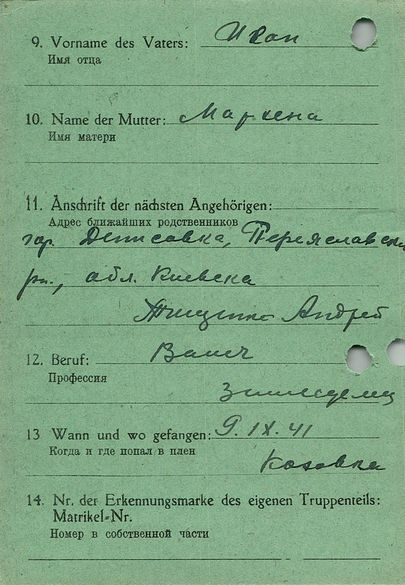 9. Vorname des Vaters: Иван
Имя отца
10. Name der Mutter: Мархена
Имя матери
11. Anschrift der nächsten Angehörigen:
Адрес ближайших родственников
гор. Денисовка, Переяславский
рн., обл. Киевска
Тищенко Андрей
12. Beruf:
Профессия
13 Wann und wo gefangen: 9. IX. 41
Когда и где попал в плен
Козовка
14. Nr. der Erkennungsmarke des eigenen Truppenteils:
Matrikel-Nr.
Номер в собственной части